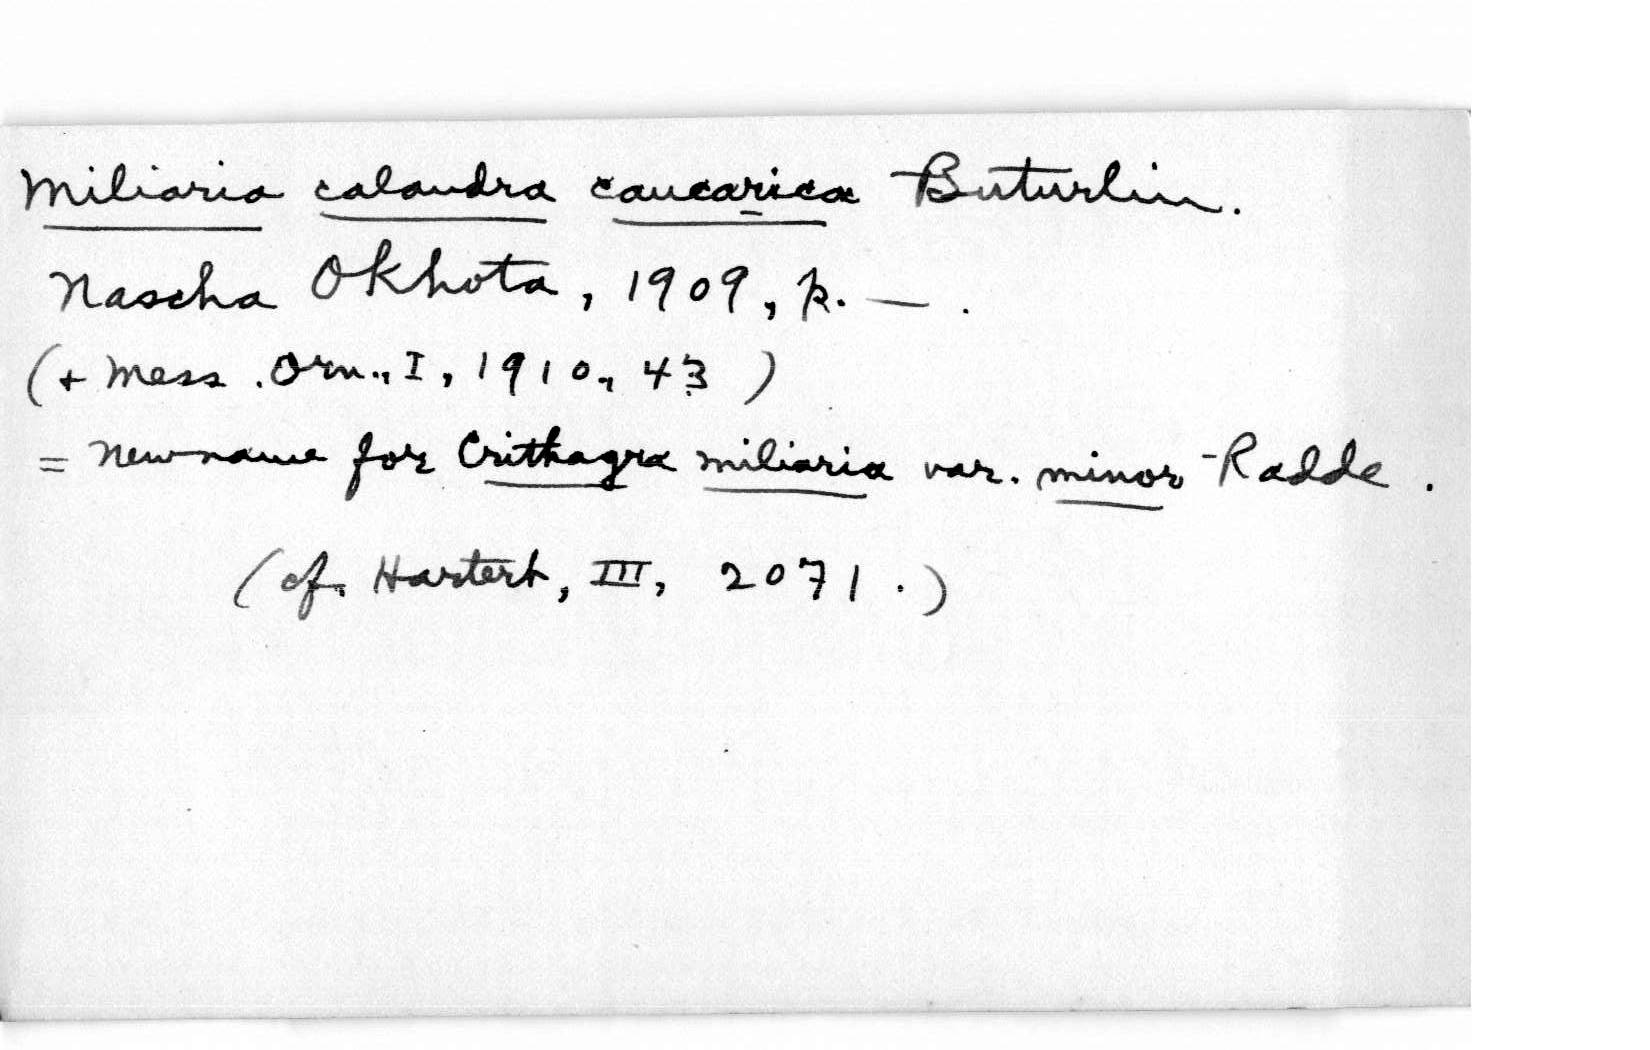 Miliaria calandra caucasica Buturlin.
Nascha Okhota, 1909, p. — .
(+ Mess. Orn., I, 1910, 43)
= New name for Crithagra miliaria var. minor Radde.
(cf. Hartert, III, 2071.)